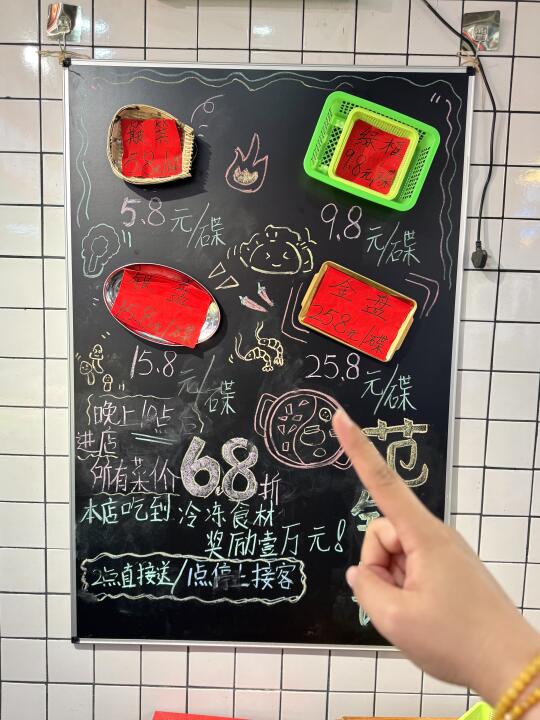 5.8元/碟
9.8元/碟
5.8元/碟
9.8元/碟
银盘
15.8元/碟
金盘
25.8元/碟
15.8元/碟
25.8元/碟
晚上10点
进店
所有菜价6.8折
本店吃到冷冻食材
奖励壹万元!
2点直接送/1点停止接客
范